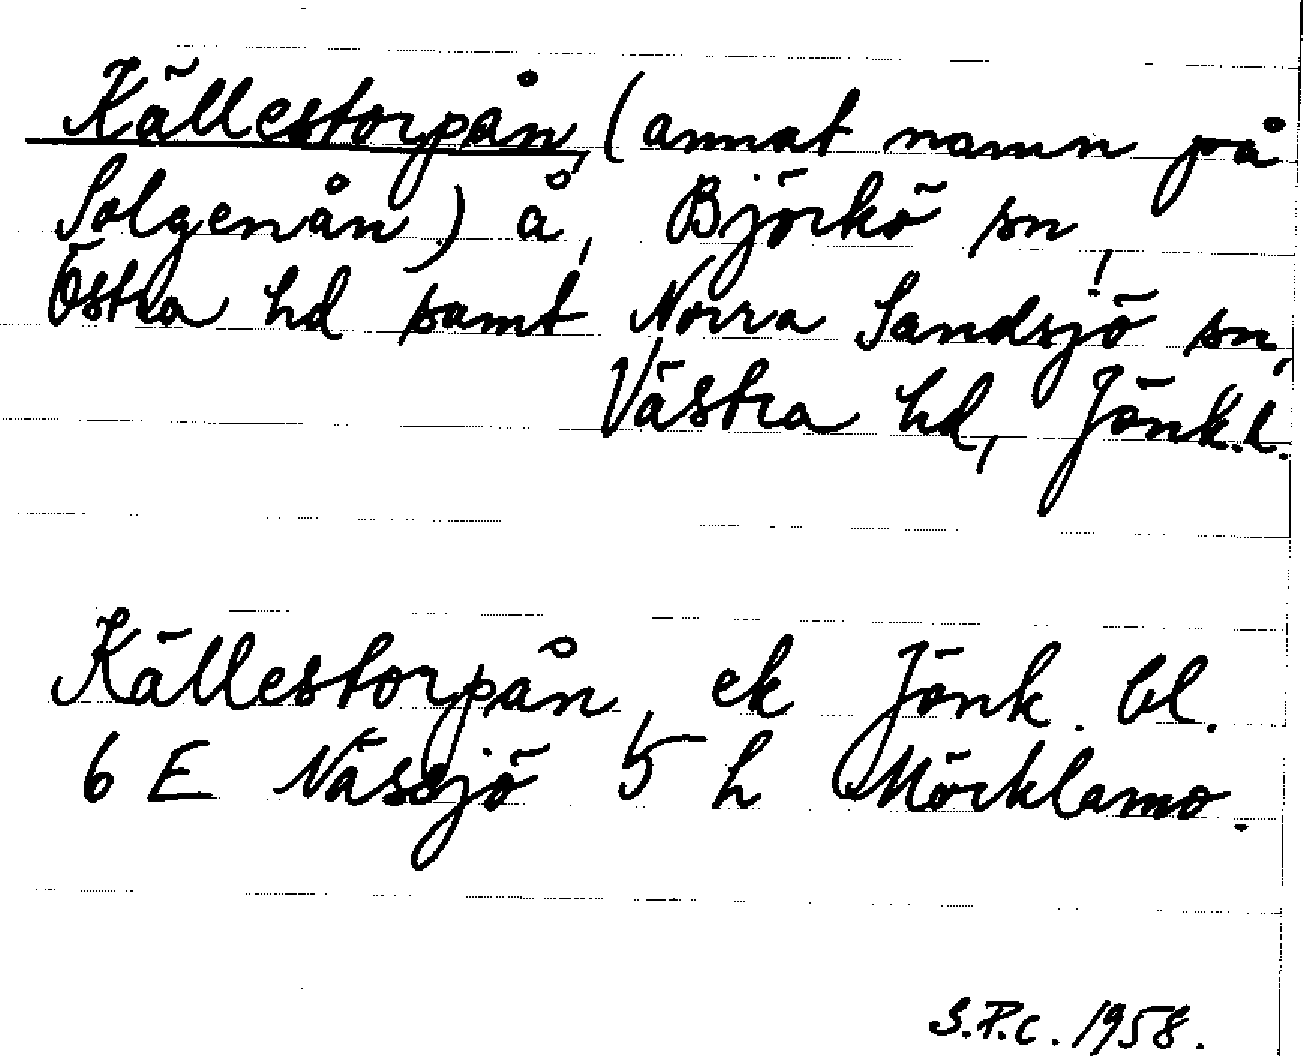 Källestorpån, (annat namn på
Solgenån) å, Björkö sn,
Östra hd samt Norra Sandsjö sn,
Västra hd, Jönk.l.
Källestorpån, ek Jönk. bl.
6 E Nässjö 5 h Möcklamo.
S.P.C. 1958.